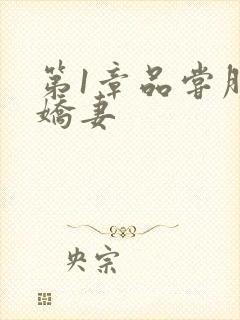 第1章品尝朋
娇妻
央宗